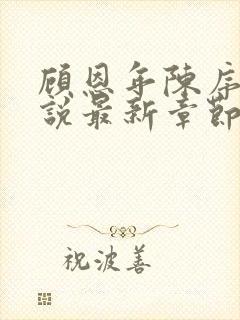 顾恩年陈序
說最新章節
祝波善